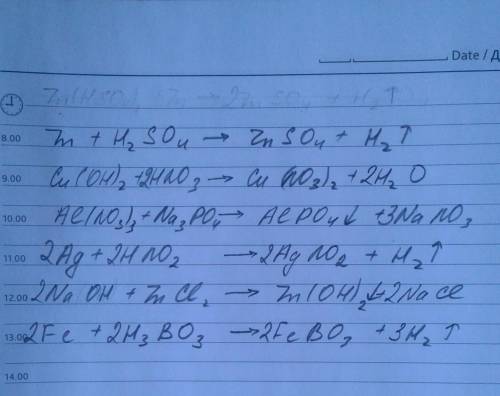 Date / Д
Zn(HSO₄)₂ + Zn → 2ZnSO₄ + H₂↑
8.00 Zn + H₂SO₄ → ZnSO₄ + H₂↑
9.00 Cu(OH)₂ + 2HNO₃ → Cu(NO₃)₂ + 2H₂O
10.00 Al(NO₃)₃ + Na₃PO₄ → AlPO₄↓ + 3NaNO₃
11.00 2Ag + 2HNO₂ → 2AgNO₂ + H₂↑
12.00 2NaOH + ZnCl₂ → Zn(OH)₂↓ + 2NaCl
13.00 2Fe + 2H₃BO₃ → 2FeBO₃ + 3H₂↑
14.00